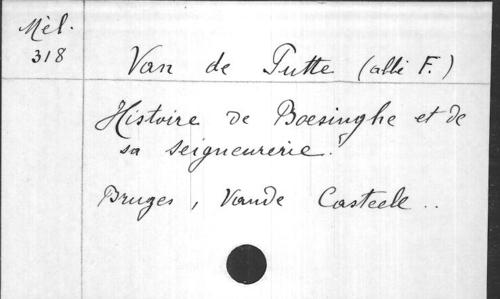 Mèl.
318
Van de Putte (abbé F.)
Histoire de Boesinghe et de
sa seigneurerie.
Bruges, Vande Casteele ..